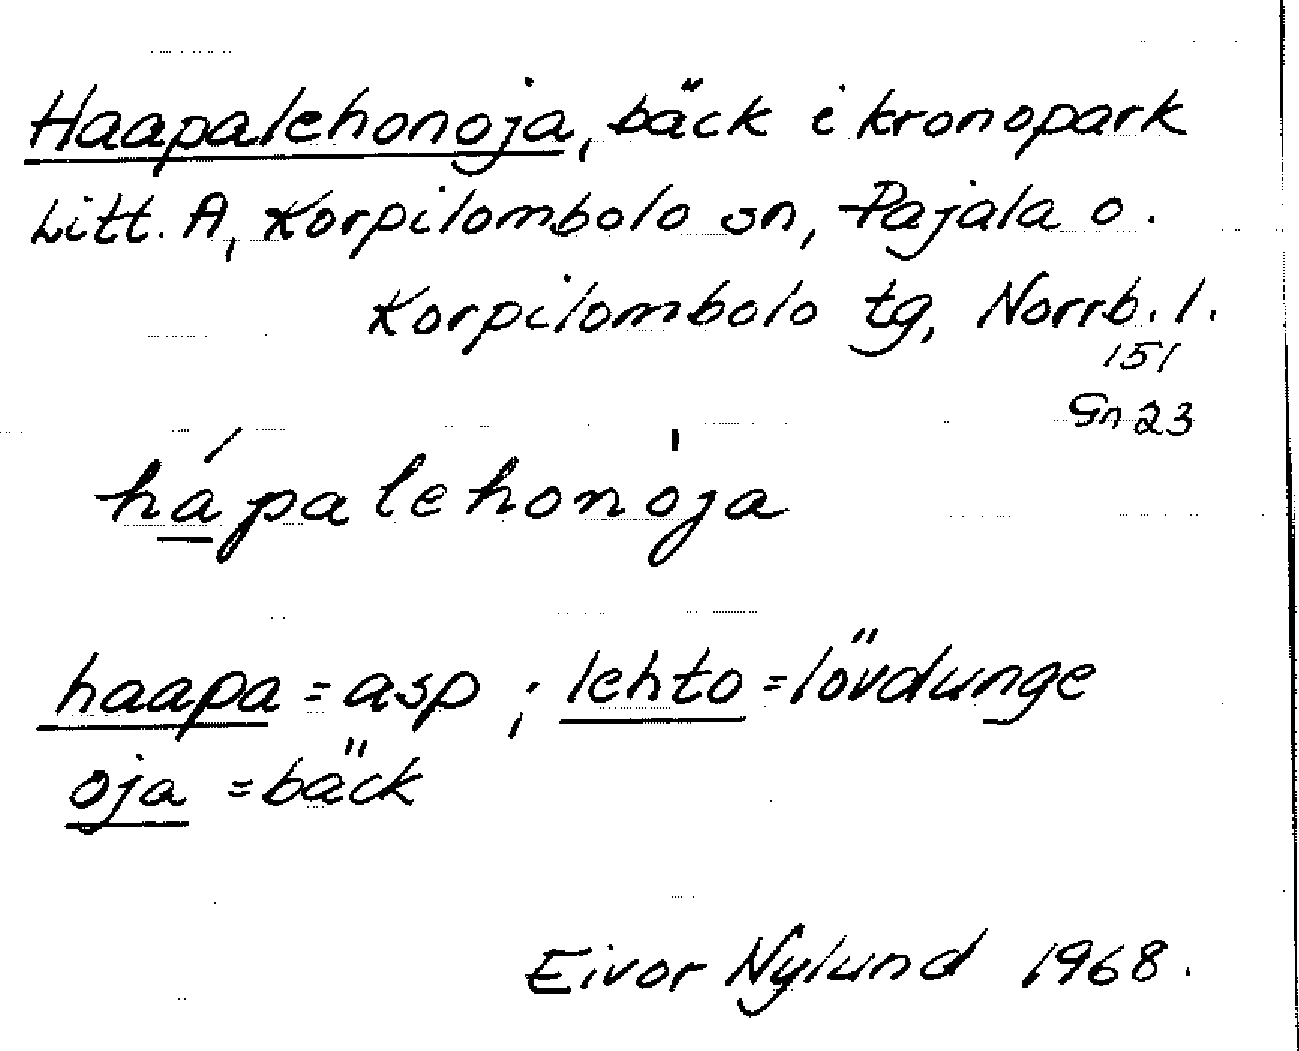 Haapalehonoja, bäck i kronopark
Litt. A, Korpilombolo sn, Pajala o.
Korpilombolo tg, Norrb. l.
151
Gn 23
há̱palehonòja
haapa = asp ; lehto = lövdunge
oja = bäck
Eivor Nylund 1968.